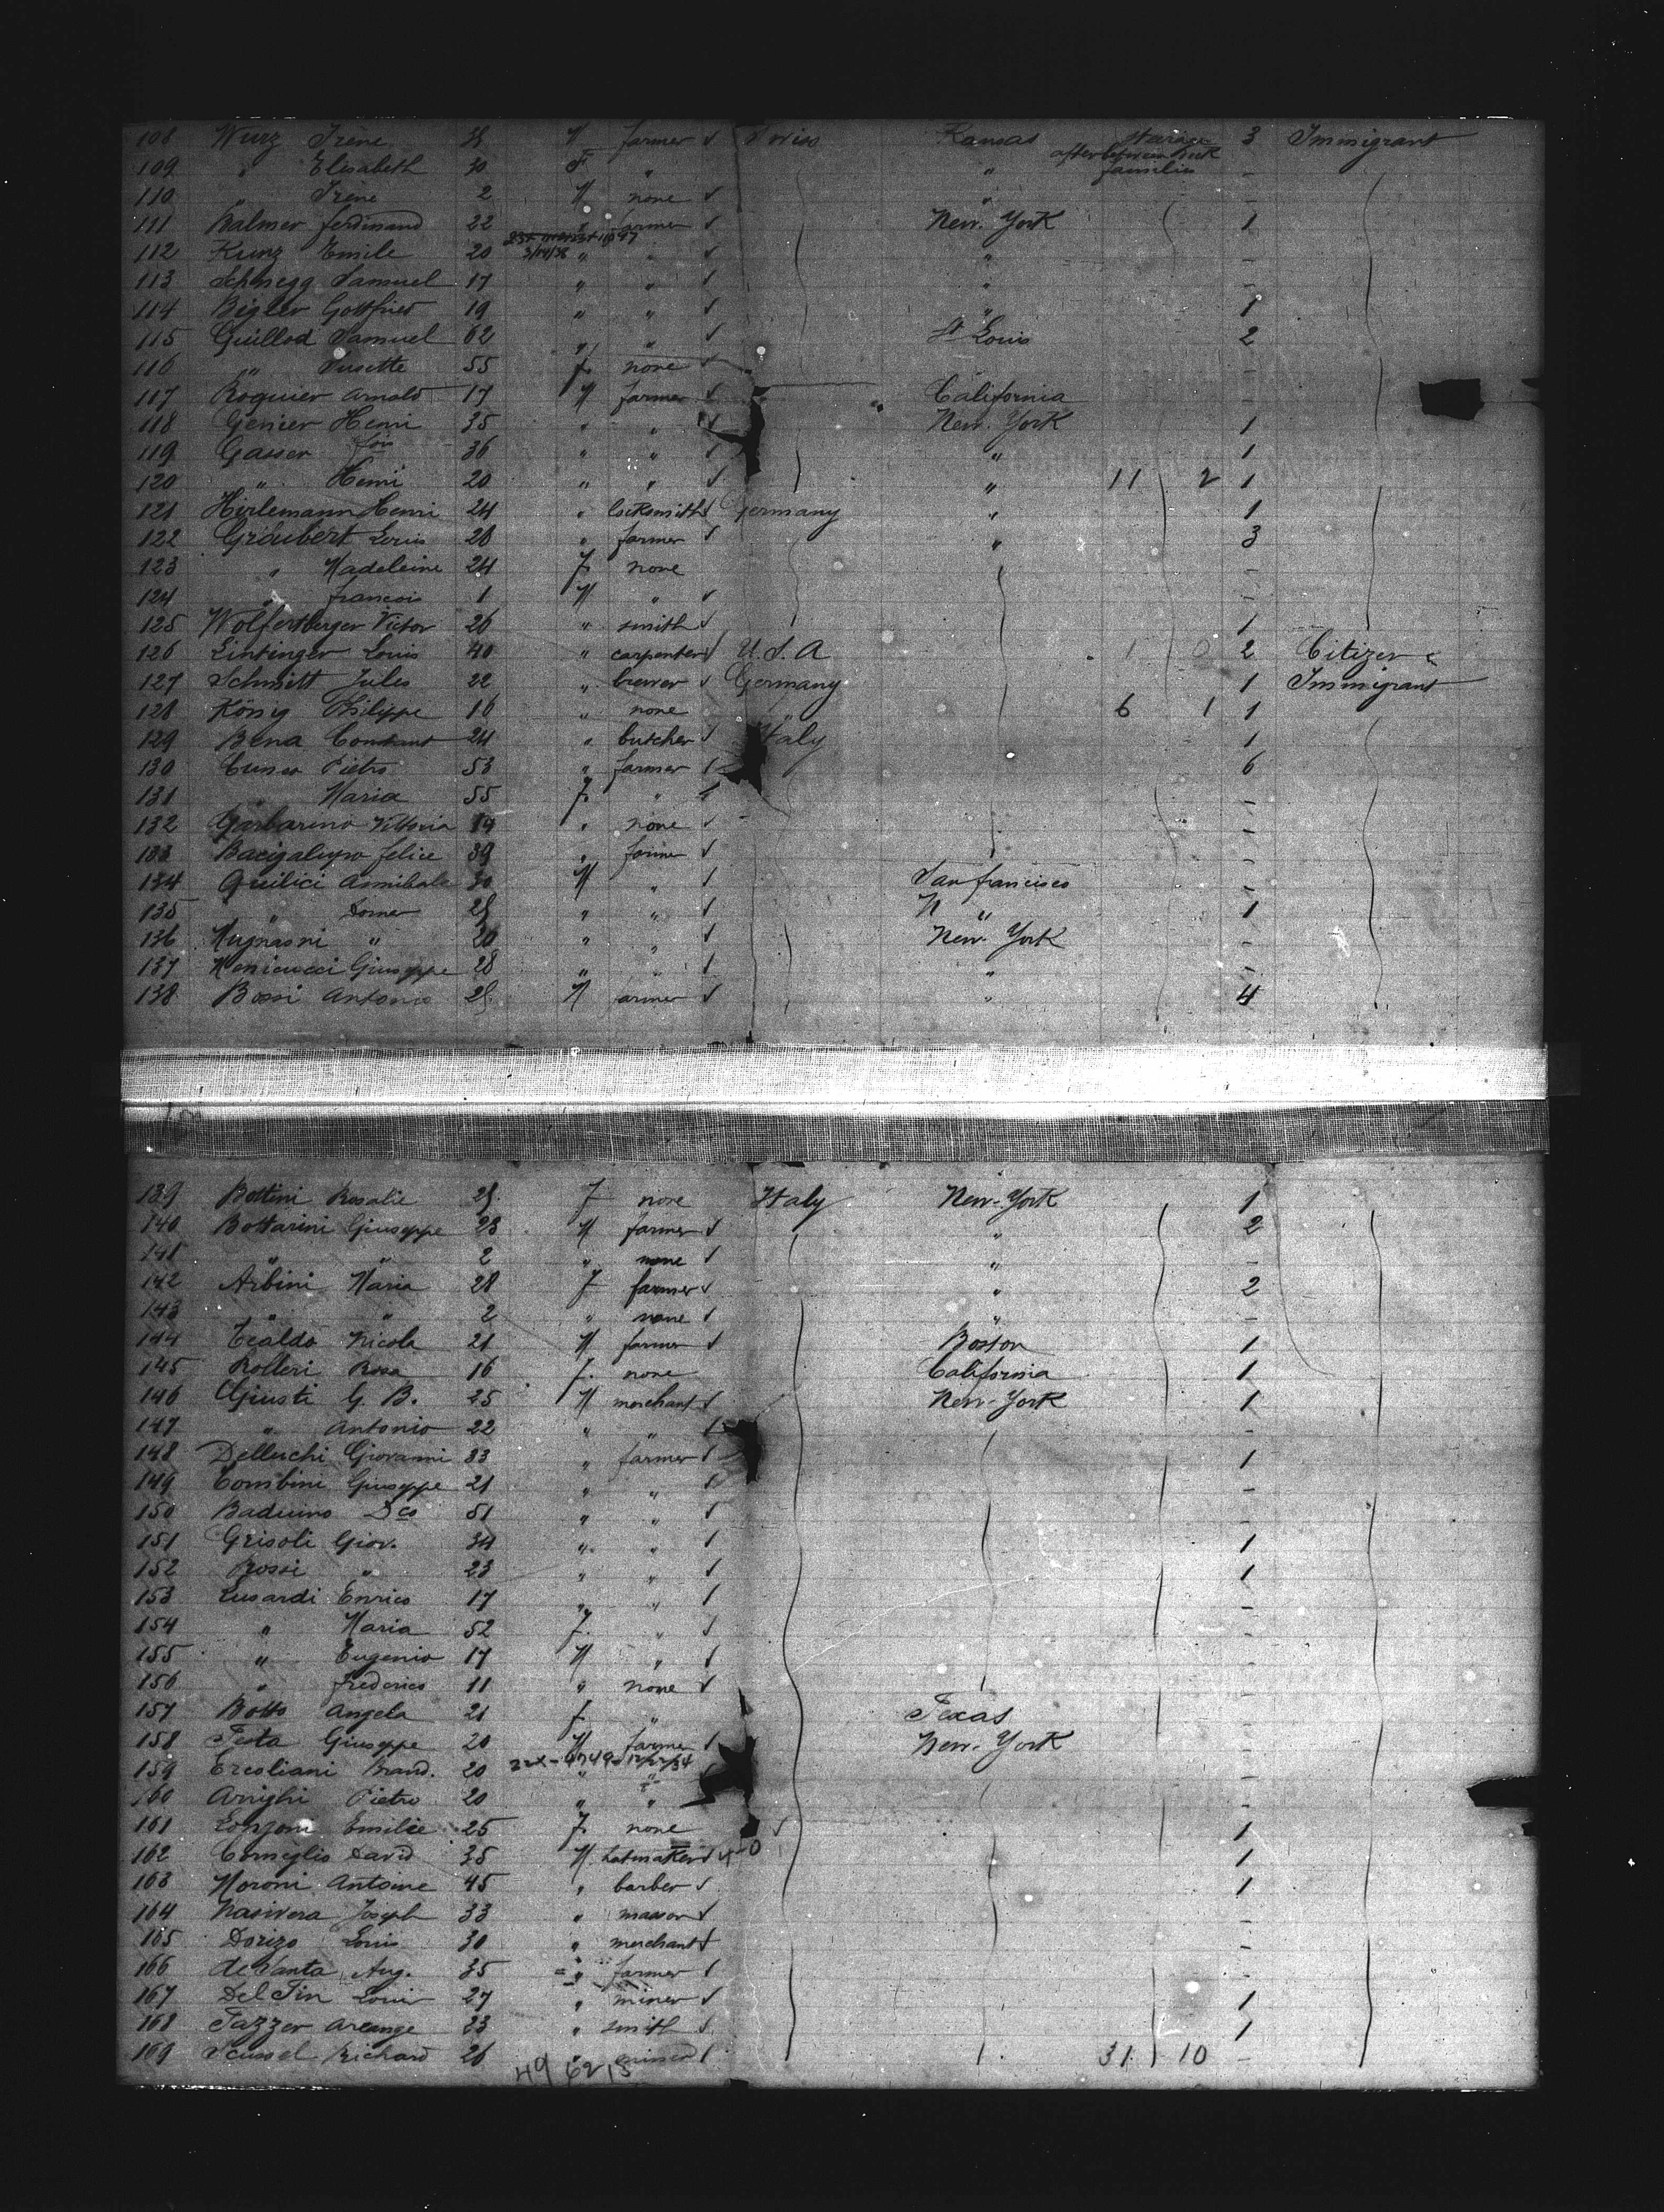 108 Wurz Irène M farmer Swiss Kansas 3 Immigrant
after between deck
109 " Elisabeth 30 F " " families -
110 " Irène 2 M none " -
111 Balmer ferdinand 22 " farmer New-York 1
112 Kunz Emile 20 3/14/38 " " " -
113 Schnegg Samuel 17 " " " -
114 Bigler Gottfried 19 " " " 1
115 Guillod Samuel 62 " " St Louis 2
116 " Susette 55 f. none -
117 Roquier Arnold 17 M farmer California -
118 Genier Henri 35 " " New-York 1
119 Gasser 36 " " " 1
120 " Henri 20 " " " 11 2 1
121 Hirlemann Henri 24 " locksmith Germany " 1
122 Graubert Louis 28 " farmer " 3
123 " Madeleine 24 f. none -
124 " francois 1 M " -
125 Wolfersberger Victor 26 " smith 1
126 Lintinger Louis 40 " carpenter U.S.A 1 0 2 Citizen
127 Schmitt Jules 22 " brewer Germany 1 Immigrant
128 König Philippe 16 " none " 6 1 1
129 Bena Constant 24 " butcher Italy 1
130 Cuneo Pietro 53 " farmer 6
131 " Maria 55 f. " -
132 Garbarino Vittoria 14 " none -
133 Bacigalupo felice 39 " farmer -
134 Quilici Annibale 30 M " San francisco -
135 " " " " 1
136 " 20 " " New-York -
137 Menicucci Giuseppe 28 " " " -
138 Bossi Antonio M farmer " 4
139 Bottini Rosalie f none Italy New-York 1
140 Bottarini Giuseppe 23 M farmer " 2
141 " " 2 " none " -
142 Arbini Maria 28 f farmer " 2
143 " " 2 " none " -
144 Nicola 21 M farmer Boston 1
145 Rolleri Rosa 16 f. none California 1
146 Giusti G. B. 25 M merchant New-York 1
147 " Antonio 22 " " -
148 Delluchi Giovanni 33 " farmer 1
149 Combini Giuseppe 21 " " -
150 Baduino Dco 51 " "
151 Grisoli Giov. 34 " " 1
152 Rossi " 23 " " 1
153 Lusardi Enrico 17 " " -
154 " Maria 52 f. " -
155 " Eugenio 17 M " -
156 " frederico 11 " none -
157 Botto Angela 21 f " Texas -
158 Testa Giuseppe 20 M farmer New-York -
159 Ercoliani Brand. 20 " " -
160 Arrighi Pietro 20 " " -
161 Lonzoni Emilie 25 f. none 1
162 Corneglio David 35 M. hatmaker 1
163 Moroni Antoine 45 " barber 1
164 Nasivera Joseph 33 " mason -
165 Dorizo Louis 30 " merchant -
166 de Santa Aug. 35 " farmer -
167 Del Tin Louis 27 " miner 1
168 Tazzer Arcange 23 " smith 1
169 Scussel Richard 26 " miner 31 10 -
49 62 15